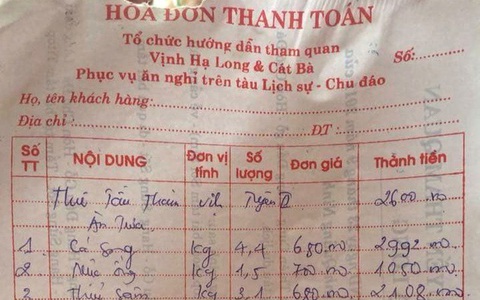 HÓA ĐƠN THANH TOÁN
Tổ chức hướng dẫn tham quan
Vịnh Hạ Long & Cát Bà
Số:
Phục vụ ăn nghỉ trên tàu Lịch sự - Chu đáo
Họ, tên khách hàng:
Địa chỉ: ĐT:
Số TT NỘI DUNG Đơn vị tính Số lượng Đơn giá Thành tiền
Thuê Tàu Thăm Vịnh Tuyến II 2600.000
Ăn Trưa
1 Cá Song kg 4,4 680.000 2992.000
2 Mực ống kg 1,5 700.000 1050.000
3 kg 3,1 680.000 2108.000